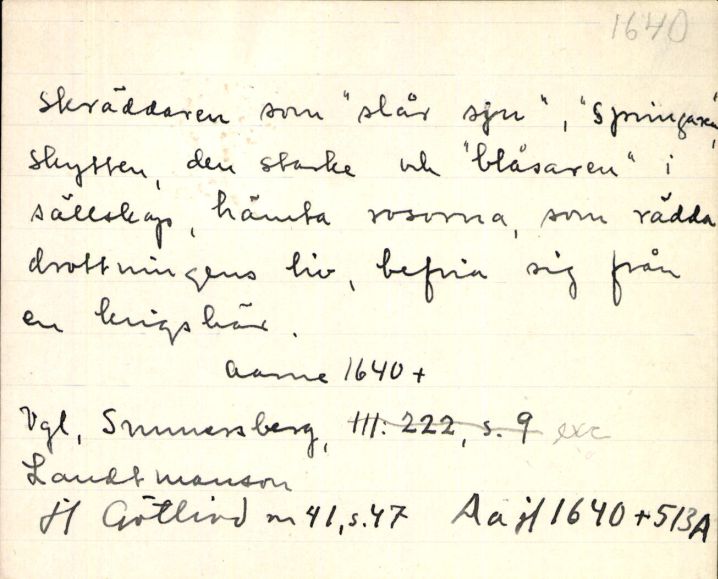 1640
Skräddaren som "slår sjn", "Springaren",
Skytten, den starke och "blåsaren" i
sällskap, hämta rosorna, som rädda
drottningens liv, befria sig från
en krigshär.
Aarne 1640+
Vgl, Smmersberg, III: 222, s. 9 exc
Landtmanson
jf Götlind nr 41, s. 47 Aa jf 1640 + 513A